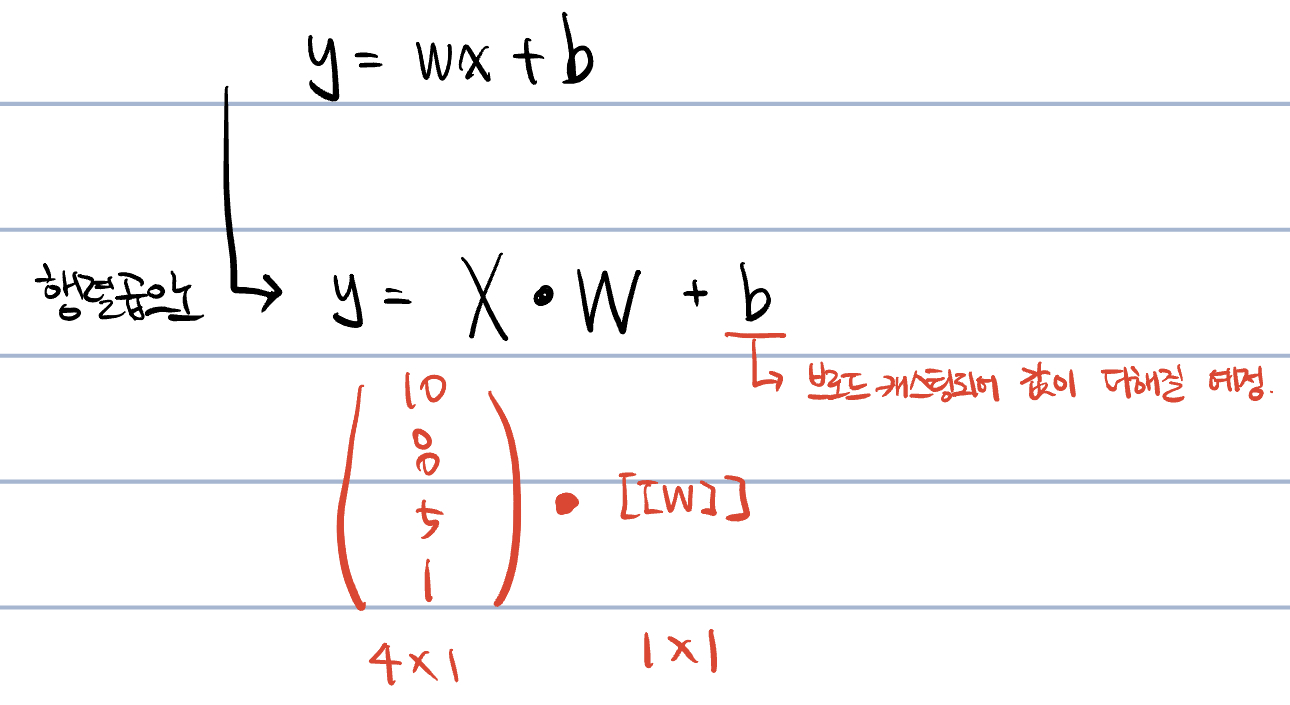 y = wx + b
행렬곱으로 y = X • W + b
브로드 캐스팅되어 값이 더해질 예정.
10
8
5
1
• [[W]]
4 x 1
1 x 1